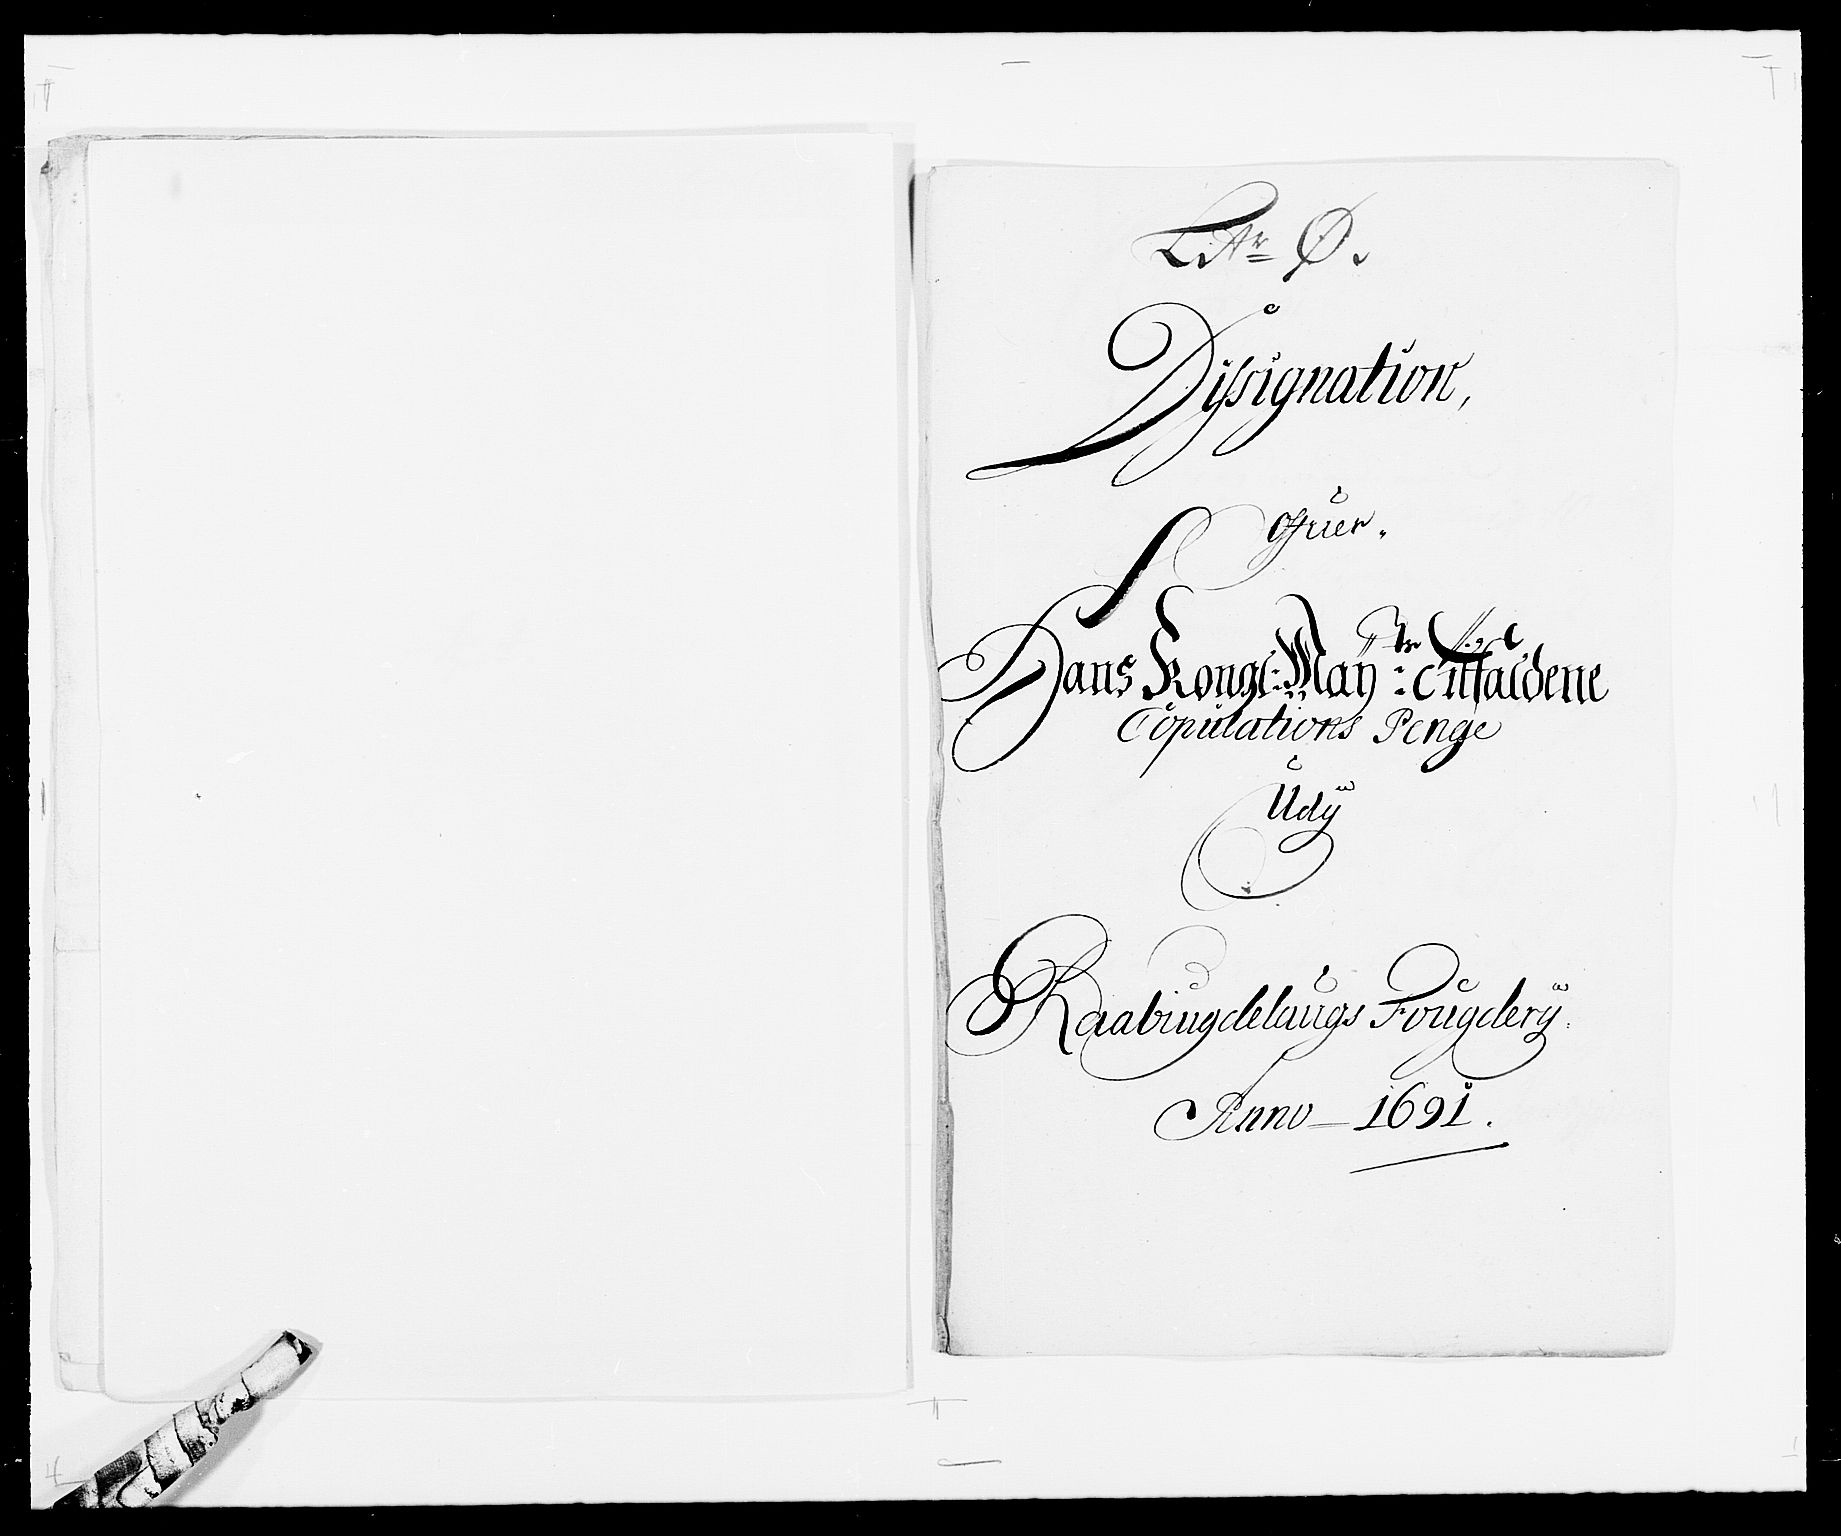 Litr Ø.
Dissignation,
Ofuer.
Hans Kongl: Maÿtz: tilfaldene
Copulations Penge
Udÿ
Raabiugdelaugs Fougderÿ:
Anno 1691.